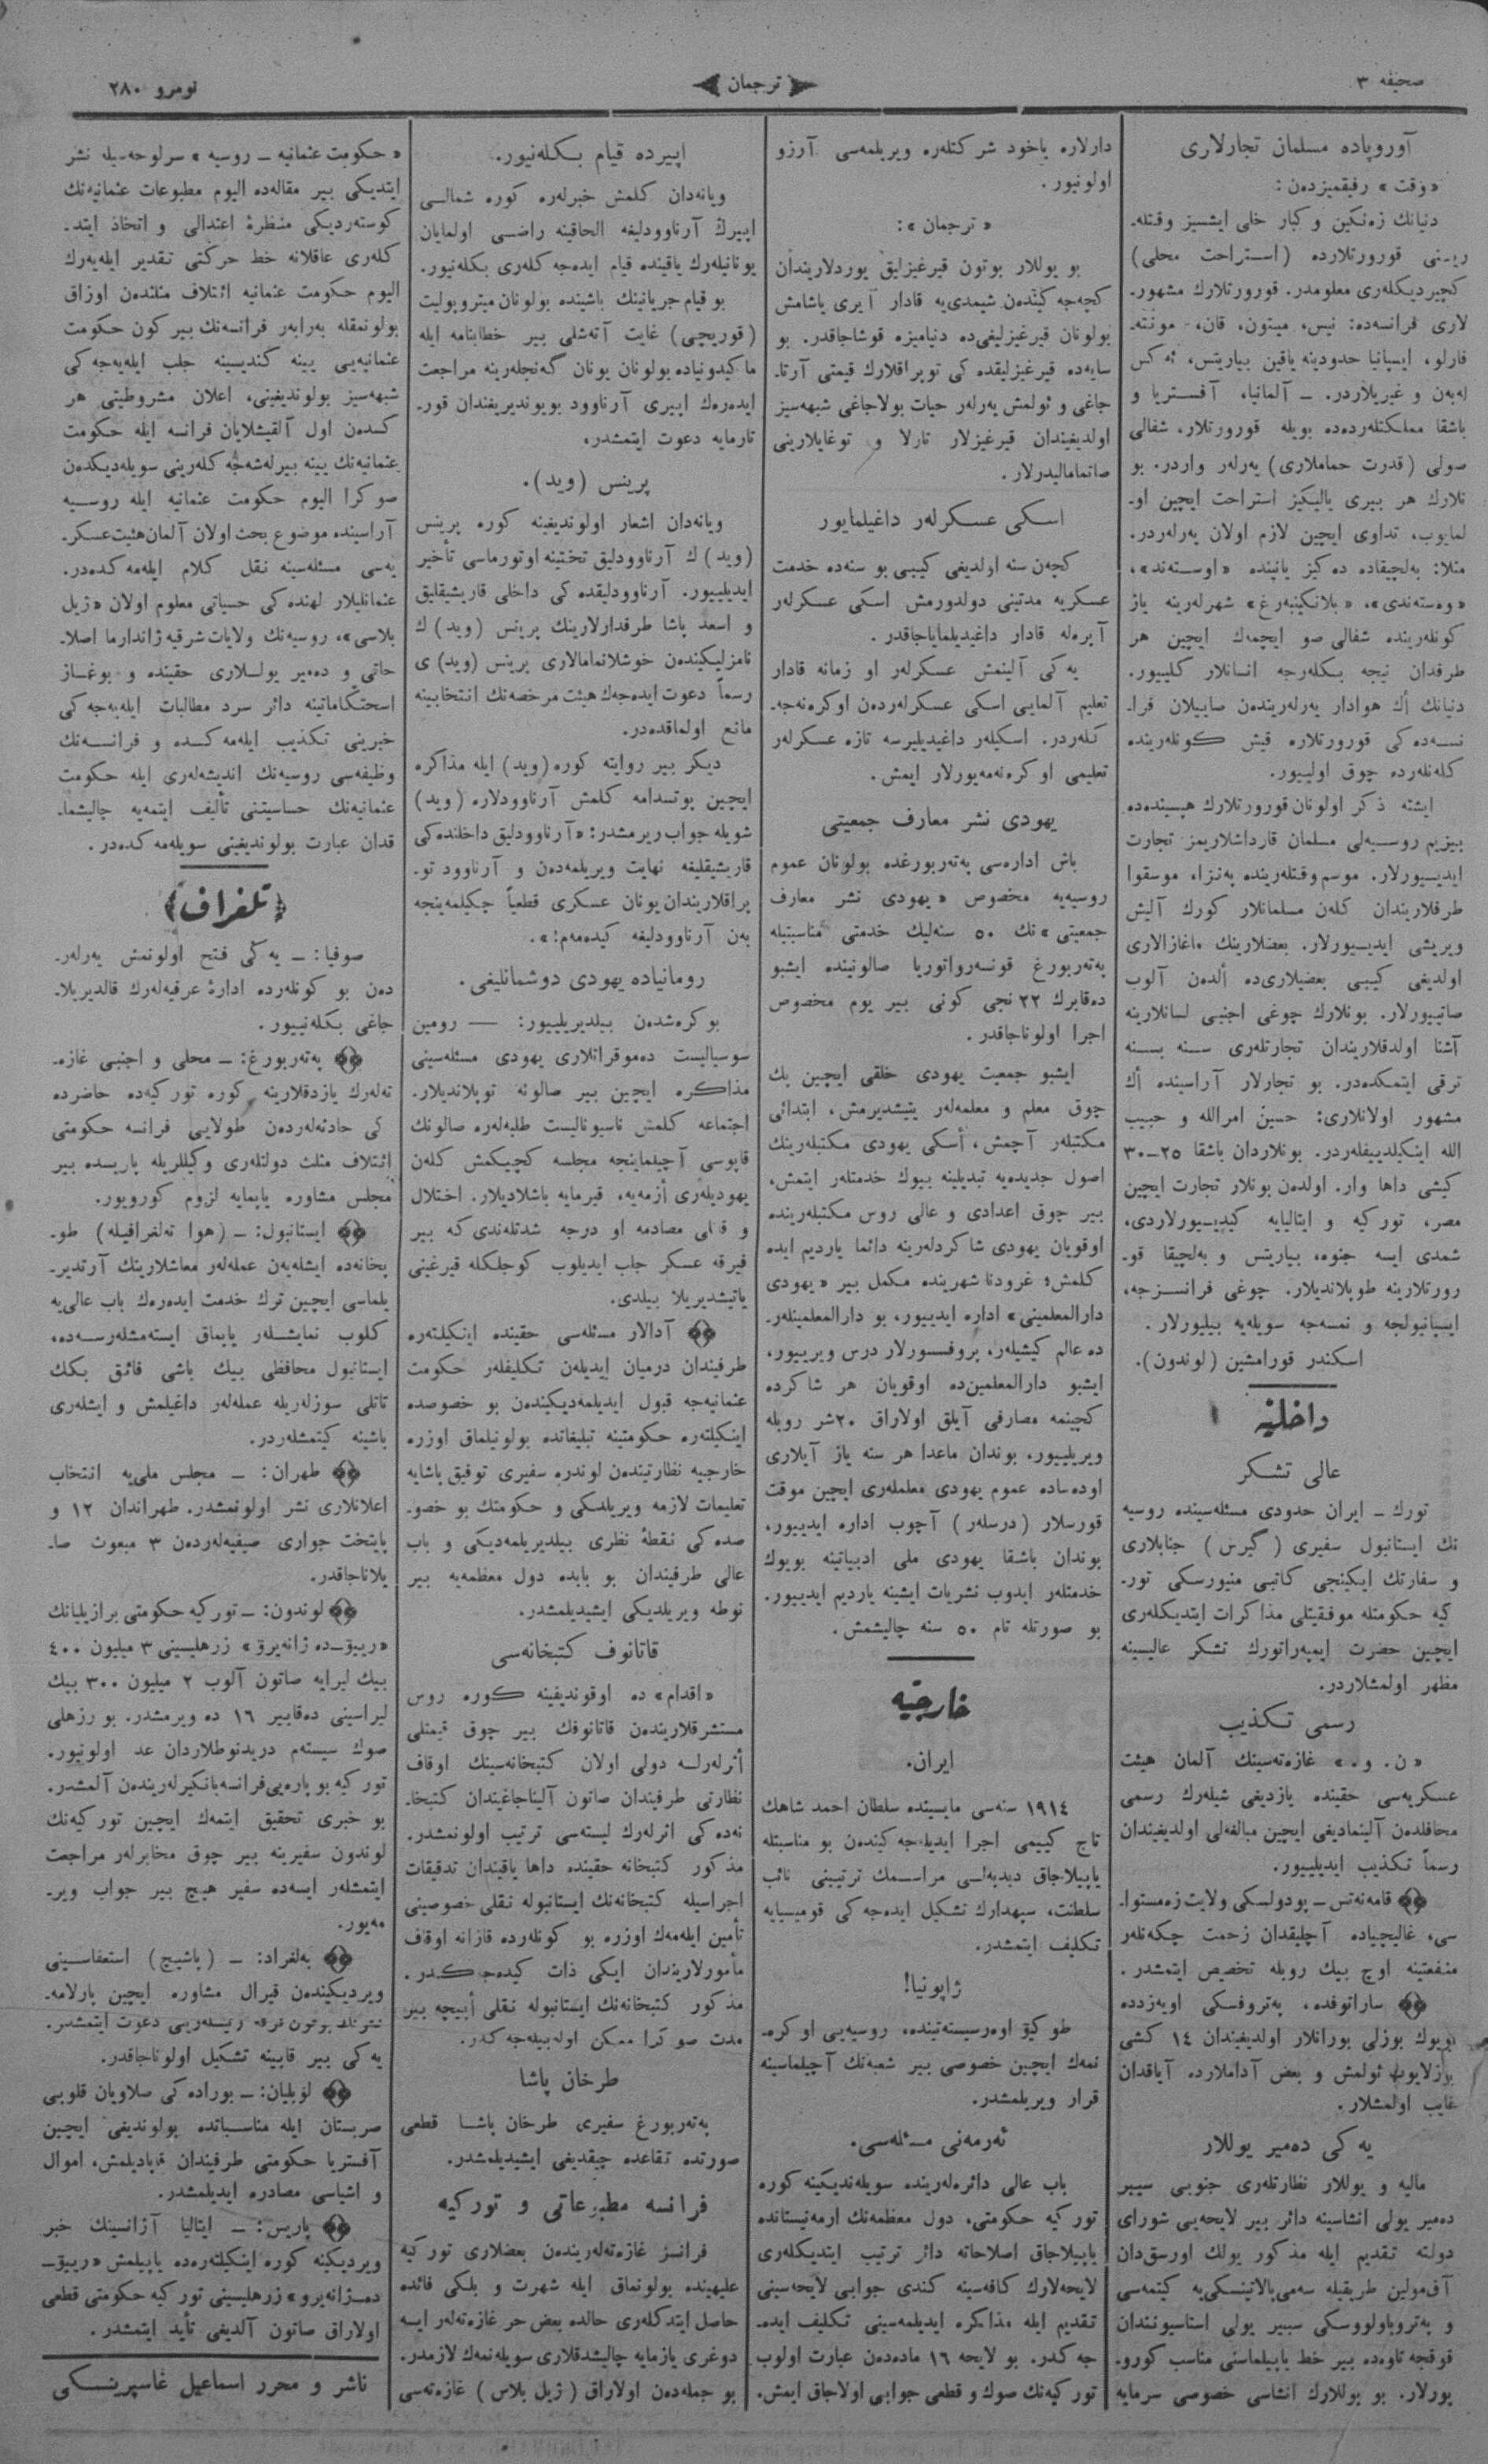 صحیفه ۳
ترجمان
نومرو ۲۸۰
آوروپاده مسلمان تجارلاری
«وقت» رفیقمیزدەن:
دنیانك زەنكین و كبار خلی ایشسیز وقتلە-
رینی قورورتلارده (استراحت محلی)
كچیردیكلەری معلومدر. قورورتلارك مشهور-
لاری فرانسەده: نیس، میتون، قان، مونتە-
قارلو، ایسپانیا حدودینه یاقین بیاریتس، ئەكس
لەبەن و غیریلاردر. ــ آلمانیا، آفستریا و
باشقا مملكتلەردەده بویله قورورتلار، شفالی
صولی (قدرت حماملاری) یەرلەر واردر. بو
نلارك هر بیری یالیكیز استراحت ایچین او-
لمایوب، تداوی ایچین لازم اولان یەرلەردر.
مثلا: بەلچیقاده دەكیز یانینده «اوستەند»،
«وەستەندی»، «بلانكینبەرغ» شهرلەرینه یاز
كونلەرینده شفالی صو ایچمەك ایچین هر
طرفدان نیچه بیكلەرجه انسانلار كلییور.
دنیانك أك هوادار یەرلەریندەن صاییلان فرا-
نسەدەكی قورورتلاره قیش كونلەرینده
كلەنلەرده چوق اولییور.
ایشته ذكر اولونان قورورتلارك هپسیندەده
بیزیم روسیەلی مسلمان قارداشلاریمز تجارت
ایدییورلار. موسم وقتلەرینده پەنزا، موسقوا
طرفلاریندان كلەن مسلمانلار كورك آلیش
ویریشی ایدییورلار. بعضلارینك ماغازالاری
اولدیغی كیبی بعضیلاری‌ده ألدەن آلوب
صاتییورلار. بونلارك چوغی اجنبی لسانلارینه
آشنا اولدقلاریندان تجارتلەری سنه بسنه
ترقی ایتمكدەدر. بو تجارلار آراسینده أك
مشهور اولانلاری: حسین امرالله و حبیب
الله اینكیلدییفلەردر. بونلاردان باشقا ۲۵ــ۳۰
كیشی داها وار. اولدەن بونلار تجارت ایچین
مصر، توركیه و ایتالیایه كیدییورلاردی،
شمدی ایسه جنوه، بیاریتس و بەلچیقا قو-
رورتلارینه طوپلاندیلار. چوغی فرانسزجه،
ایسپانیولجه و نمسه‌جه سویلەیه بیلیورلار.
اسكندر قورامشین (لوندون).
داخلیه
عالی تشكر
تورك ــ ایران حدودی مسئلەسینده روسیه
نك ایستانبول سفیری (گیرس) جنابلاری
و سفارتك ایكینجی كاتبی مینورسكی تور-
كیه حكومتله موفقیتلی مذاكرات ایتدیكلەری
ایچین حضرت ایمپەراتورك تشكر عالیسینه
مظهر اولمشلاردر.
رسمی تكذیب
«ن. و.» غازەتەسینك آلمان هیئت
عسكریەسی حقینده یازدیغی شیلەرك رسمی
محافلدەن آلینمادیغی ایچین مبالغەلی اولدیغیندان
رسماً تكذیب ایدیلییور.
قامەنەتس ــ پودولسكی ولایت زەمستوا-
سی، غالیچیاده آچلیقدان زحمت چكەنلەر
منفعتینه اوچ بیك روبله تخصیص ایتمشدر.
ساراتوفده، پەتروفسكی اویەزدده
بویوك بوزلی بورانلار اولدیغیندان ۱۴ كشی
بوزلایوب ئولمش و بعض آداملارده آیاقدان
غایب اولمشلار.
یەكی دەمیر یوللار
مالیه و یوللار نظارتلەری جنوبی سیبر
دەمیر یولی انشاسینه دائر بیر لایحەیی شورای
دولته تقدیم ایله مذكور یولك اورسق‌دان
آق‌مولین طریقیله سەمی‌پالاتینسكی‌یه كیتمەسی
و پەتروپاولووسكی سیبیر یولی استاسیونندان
قوقجه‌تاوەده بیر خط یاپیلماسنی مناسب كورو-
یورلار. بو یوللارك انشاسی خصوصی سرمایه
دارلاره یاخود شركتلەره ویریلمەسی آرزو
اولونیور.
«ترجمان»:
بو یوللار بوتون قیرغیزلیق یوردلاریندان
كچەجه كیندەن شیمدی‌یه قادار آیری یاشامش
بولونان قیرغیزلیغی‌ده دنیامیزه قوشاجاقدر. بو
سایەده قیرغیزلیقده‌كی توپراقلارك قیمتی آرتا-
جاغی و ئولمش یەرلەر حیات بولاجاغی شبهەسیز
اولدیغیندان قیرغیزلار تارلا و توغایلارینی
صاتمامالیدرلار.
اسكی عسكرلەر داغیلمایور
كچەن سنه اولدیغی كیبی بو سنەده خدمت
عسكریه مدتینی دولدورمش اسكی عسكرلەر
آپرەله قادار داغیدیلمایاجاقدر.
یەكی آلینمش عسكرلەر او زمانه قادار
تعلیم آلمایی اسكی عسكرلەردەن اوكرەنەجە-
كلەردر. اسكیلەر داغیدیلیرسه تازه عسكرلەر
تعلیمی اوكرەنەمەیورلار ایمش.
یهودی نشر معارف جمعیتی
باش ادارەسی پەتەربورغده بولونان عموم
روسیەیه مخصوص «یهودی نشر معارف
جمعیتی»نك ۵۰ سنەلیك خدمتی مناسبتیله
پەتەربورغ قونسەرواتوریا صالونینده ایشبو
دەقابرك ۲۲نجی كونی بیر یوم مخصوص
اجرا اولوناجاقدر.
ایشبو جمعیت یهودی خلقی ایچین یك
چوق معلم و معلمەلەر یتیشدیرمش، ابتدائی
مكتبلەر آچمش، أسكی یهودی مكتبلەرینك
اصول جدیدەیه تبدیلینه بیوك خدمتلەر ایتمش،
بیر چوق اعدادی و عالی روس مكتبلەرینده
اوقویان یهودی شاكردلەرینه دائما یاردیم ایده
كلمش؛ غرودنا شهرینده مكمل بیر «یهودی
دارالمعلمینی» اداره ایدییور، بو دارالمعلمینلەر-
ده عالم كیشیلەر، پروفسورلار درس ویرییور،
ایشبو دارالمعلمین‌ده اوقویان هر شاكرده
كچینمه مصارفی آیلق اولاراق ۲۰شر روبله
ویریلییور، بوندان ماعدا هر سنه یاز آیلاری
اودەساده عموم یهودی معلملەری ایچین موقت
قورسلار (درسلەر) آچوب اداره ایدییور،
بوندان باشقا یهودی ملی ادبیاتینه بویوك
خدمتلەر ایدوب نشریات ایشینه یاردیم ایدییور.
بو صورتله تام ۵۰ سنه چالیشمش.
خارجیه
ایران.
۱۹۱۴ سنەسی مایسینده سلطان احمد شاهك
تاج كییمی اجرا ایدیلەجه كیندەن بو مناسبتله
یاپیلاجاق دبدبەلی مراسمك ترتیبنی نائب
سلطنت، سپهدارك تشكیل ایدەجه كی قومیسیایه
تكلیف ایتمشدر.
ژاپونیا!
طوكیۆ اوەرسیتەتینده، روسیەیی اوكرە-
نمەك ایچین خصوصی بیر شعبەنك آچیلماسینه
قرار ویریلمشدر.
ئەرمەنی مسئلەسی.
باب عالی دائرەلەرینده سویلەندیكینه كوره
توركیه حكومتی، دول معظمەنك ارمنیستانده
یاپیلاجاق اصلاحاته دائر ترتیب ایتدیكلەری
لایحەلارك كافەسینه كندی جوابی لایحەسینی
تقدیم ایله مذاكره ایدیلمەسینی تكلیف ایدە-
جه كدر. بو لایحه ۱۶ مادەدەن عبارت اولوب
توركیەنك صوك و قطعی جوابی اولاجاق ایمش.
اپیرده قیام بكلەنیور.
ویانەدان كلمش خبرلەره كوره شمالی
اپیرك آرناوودلیغه الحاقینه راضی اولمایان
یونانیلەرك یاقینده قیام ایدەجه كلەری بكلەنیور.
بو قیام جریانینك باشینده بولونان میتروپولیت
(قوریچی) غایت آتەشلی بیر خطابنامه ایله
ماكیدونیاده بولونان یونان گەنجلەرینه مراجعت
ایدەرەك اپیری آرناوود بویوندیریغندان قور-
تارمایه دعوت ایتمشدر.
پرینس (وید).
ویانەدان اشعار اولوندیغینه كوره پرینس
(وید)ك آرناوودلیق تختینه اوتورماسی تأخیر
ایدیلییور. آرناوودلیقده‌كی داخلی قاریشیقلیق
و اسعد پاشا طرفدارلارینك پرینس (وید)ك
نامزلیكیندەن خوشلانمامالاری پرینس (وید)ی
رسماً دعوت ایدەجەك هیئت مرخصەنك انتخابینه
مانع اولماقدەدر.
دیكر بیر روایته كوره (وید) ایله مذاكره
ایچین پوتسدامه كلمش آرناوودلاره (وید)
شویله جواب ویرمشدر: «آرناوودلیق داخلنده‌كی
قاریشیقلیغه نهایت ویریلمەدەن و آرناوود تو-
پراقلاریندان یونان عسكری قطعیاً چكیلمەینجه
بەن آرناوودلیغه كیدەمەم!».
رومانیاده یهودی دوشمانلیغی.
بوكرەشدەن بیلدیریلییور: ــ رومین
سوسیالیست دەموقراتلاری یهودی مسئلەسینی
مذاكره ایچین بیر صالونه توپلاندیلار.
اجتماعه كلمش ناسیونالیست طلبەلەره صالونك
قاپوسی آچیلماینجه مجلسه كچیكمش كلەن
یهودیلەری أزمەیه، قیرمایه باشلادیلار. اختلال
و قانلی مصادمه او درجه شدتلەندی‌كه بیر
فیرقه عسكر جلب ایدیلوب كوجلكله قیرغینی
یاتیشدیریلا بیلدی.
آدالار مسئلەسی حقینده اینكیلتەره
طرفیندان درمیان ایدیلەن تكلیفلەر حكومت
عثمانیەجه قبول ایدیلمەدیكیندەن بو خصوصده
اینكیلتەره حكومتینه تبلیغاتده بولونیلماق اوزره
خارجیه نظارتیندەن لوندره سفیری توفیق پاشایه
تعلیمات لازمه ویریلدیكی و حكومتك بو خصو-
صده‌كی نقطۀ نظری بیلدیریلمەدیكی و باب
عالی طرفیندان بو بابده دول معظمەیه بیر
نوطه ویریلدیكی ایشیدیلمشدر.
قاتانوف كتبخانەسی
«اقدام» ده اوقوندیغینه كوره روس
مستشرقلاریندەن قاتانوفك بیر چوق قیمتلی
أثرلەرله دولی اولان كتبخانەسینك اوقاف
نظارتی طرفیندان صاتون آلیناجاغیندان كتبخا-
نەده‌كی اثرلەرك لیستەسی ترتیب اولونمشدر.
مذكور كتبخانه حقینده داها یاقیندان تدقیقات
اجراسیله كتبخانەنك ایستانبوله نقلی خصوصینی
تأمین ایلەمەك اوزره بو كونلەرده قازانه اوقاف
مأمورلاریندان ایكی ذات كیدەجه كدر.
مذكور كتبخانەنك ایستانبوله نقلی أییچه بیر
مدت صوكرا ممكن اولەبیلەجه كدر.
طرخان پاشا
پەتەربورغ سفیری طرخان پاشا قطعی
صورتده تقاعده چیقدیغی ایشیدیلمشدر.
فرانسه مطبوعاتی و توركیه
فرانسز غازەتەلەریندەن بعضلاری توركیه
علیهینده بولونماق ایله شهرت و بلكی فائده
حاصل ایتدكلەری حالده بعض حر غازەتەلەر ایسه
دوغری یازمایه چالیشدقلاری سویلەنمەك لازمدر.
بو جملەدەن اولاراق (ژیل بلاس) غازەتەسی
«حكومت عثمانیه ــ روسیه» سرلوحەسیله نشر
ایتدیكی بیر مقالەده الیوم مطبوعات عثمانیەنك
كوستەردیكی منظرۀ اعتدالی و اتخاذ ایتد-
كلەری عاقلانه خط حركتی تقدیر ایلەیەرك
الیوم حكومت عثمانیه ائتلاف مثلثدن اوزاق
بولونمقله بەرابەر فرانسەنك بیر كون حكومت
عثمانیەیی یینه كندیسینه جلب ایلەیەجه كی
شبهەسیز بولوندیغینی، اعلان مشروطیتی هر
كسدەن اول آلقیشلایان فرانسه ایله حكومت
عثمانیەنك یینه بیرلەشەجه كلەرینی سویلەدیكدەن
صوكرا الیوم حكومت عثمانیه ایله روسیه
آراسینده موضوع بحث اولان آلمان هئیت عسكر-
یەسی مسئلەسینه نقل كلام ایلەمەكدەدر.
عثمانلیلار لهنده‌كی حسیاتی معلوم اولان «ژیل
بلاس»، روسیەنك ولایات شرقیه ژاندارما اصلا-
حاتی و دەمیر یوللاری حقینده و بوغاز
استحكاماتینه دائر سرد مطالبات ایلەیەجه كی
خبرینی تكذیب ایلەمەكده و فرانسەنك
وظیفەسی روسیەنك اندیشەلەری ایله حكومت
عثمانیەنك حساسیتنی تألیف ایتمەیه چالیشما-
قدان عبارت بولوندیغینی سویلەمەكدەدر.
﴿تلغراف﴾
صوفیا: ــ یەكی فتح اولونمش یەرلەر-
دەن بو كونلەرده ادارۀ عرفیەلەرك قالدیریلا-
جاغی بكلەنییور.
پەتەربورغ: ــ محلی و اجنبی غازە-
تەلەرك یازدقلارینه كوره توركیەده حاضرده
كی حادثەلەردەن طولایی فرانسه حكومتی
ائتلاف مثلث دولتلەری وكیللریله پاریسده بیر
مجلس مشاوره یاپمایه لزوم كورویور.
ایستانبول: ــ (هوا تەلغرافیله) طو-
پخانەده ایشلەیەن عملەلەر معاشلارینك آرتدیر-
یلماسی ایچین ترك خدمت ایدەرەك باب عالی‌یه
كلوب نمایشلەر یاپماق ایستەمشلەرسەده،
ایستانبول محافظی بیك باشی فائق بكك
تاتلی سوزلەریله عملەلەر داغیلمش و ایشلەری
باشینه كیتمشلەردر.
طهران: ــ مجلس ملی‌یه انتخاب
اعلانلاری نشر اولونمشدر. طهراندان ۱۲ و
پایتخت جواری صیفیەلەردەن ۳ مبعوث صا-
یلاناجاقدر.
لوندون: ــ توركیه حكومتی برازیلیانك
«رییۆ‌ده ژانەیرۆ» زرهلیسینی ۳ میلیون ۴۰۰
بیك لیرایه صاتون آلوب ۲ میلیون ۳۰۰ بیك
لیراسینی دەقابیر ۱۶ ده ویرمشدر. بو زرهلی
صوك سیستەم دریدنوطلاردان عد اولونیور.
توركیه بو پارەیی فرانسه بانكیرلەریندەن آلمشدر.
بو خبری تحقیق ایتمەك ایچین توركیەنك
لوندون سفیرینه بیر چوق مخابرلەر مراجعت
ایتمشلەر ایسەده سفیر هیچ بیر جواب ویر-
مەیور.
بەلغراد: ــ (پاشیچ) استعفاسینی
ویردیكیندەن قیرال مشاوره ایچین پارلامە-
نتونك بوتون فرقه رئیسلەرینی دعوت ایتمشدر.
یەكی بیر قابینه تشكیل اولوناجاقدر.
لۆبلیان: ــ بوراده‌كی صلاویان قلوبی
صربستان ایله مناسباتده بولوندیغی ایچین
آفستریا حكومتی طرفیندان قاپادیلمش، اموال
و اشیاسی مصادره ایدیلمشدر.
پاریس: ــ ایتالیا آژانسینك خبر
ویردیكینه كوره اینكیلتەرەده یاپیلمش «رییۆــ
دەــژانەیرو» زرهلیسینی توركیه حكومتی قطعی
اولاراق صاتون آلدیغی تأید ایتمشدر.
ناشر و محرر اسماعیل غاسپرینسكی